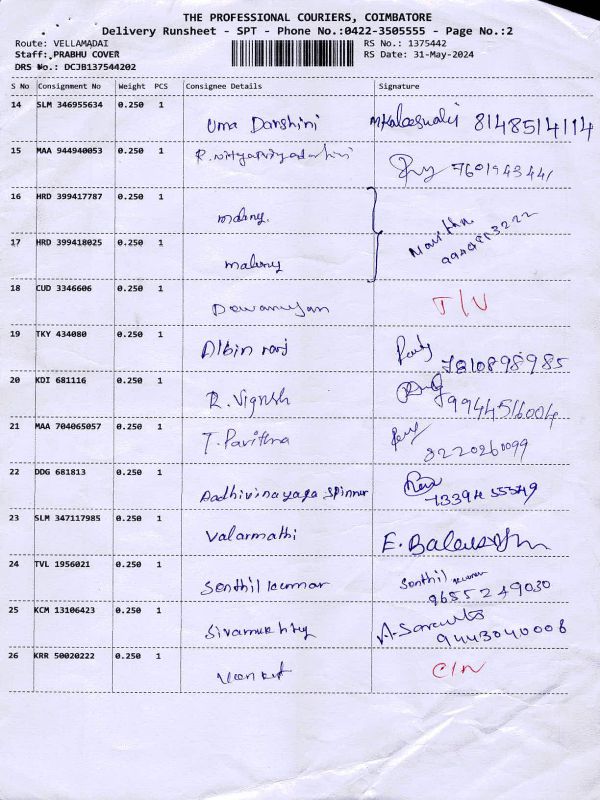 THE PROFESSIONAL COURIERS, COIMBATORE
Delivery Runsheet - SPT - Phone No.:0422-3505555 - Page No.:2
Route: VELLAMADAI RS No.: 1375442
Staff: PRABHU COVER RS Date: 31-May-2024
DRS No.: DCJB137544202
S No Consignment No Weight PCS Consignee Details Signature
14 SLM 346955634 0.250 1
Uma Darshini 8148514114
15 MAA 944940053 0.250 1
7601943441
16 HRD 399417787 0.250 1
17 HRD 399418025 0.250 1
18 CUD 3346606 0.250 1
T/V
19 TKY 434080 0.250 1
Albin raj 7810898985
20 KDI 681116 0.250 1
R. Vignesh 9944516004
21 MAA 704065057 0.250 1
T. Pavithra 8220261099
22 DDG 681813 0.250 1
Aadhivinayaga spinner
23 SLM 347117985 0.250 1
Valarmathi
24 TVL 1956021 0.250 1
Senthil kumar Senthil kumar
9655249030
25 KCM 13106423 0.250 1
9443040008
26 KRR 50020222 0.250 1
Venkat C/N